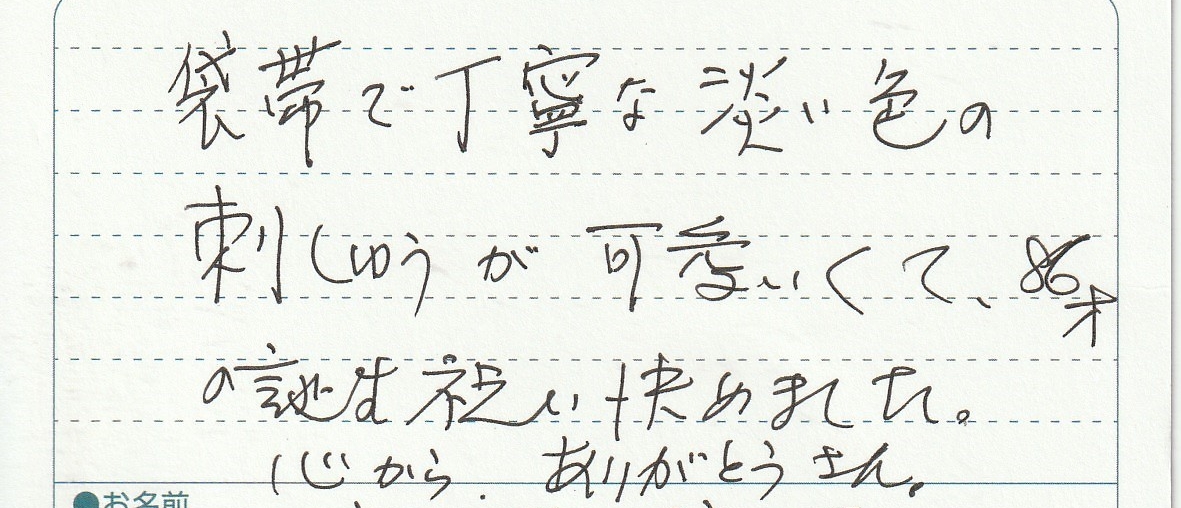 袋帯で丁寧な淡い色の
刺しゅうが可愛いくて、86才
の誕生祝い決めました。
心から.ありがとうさん。
●お名前